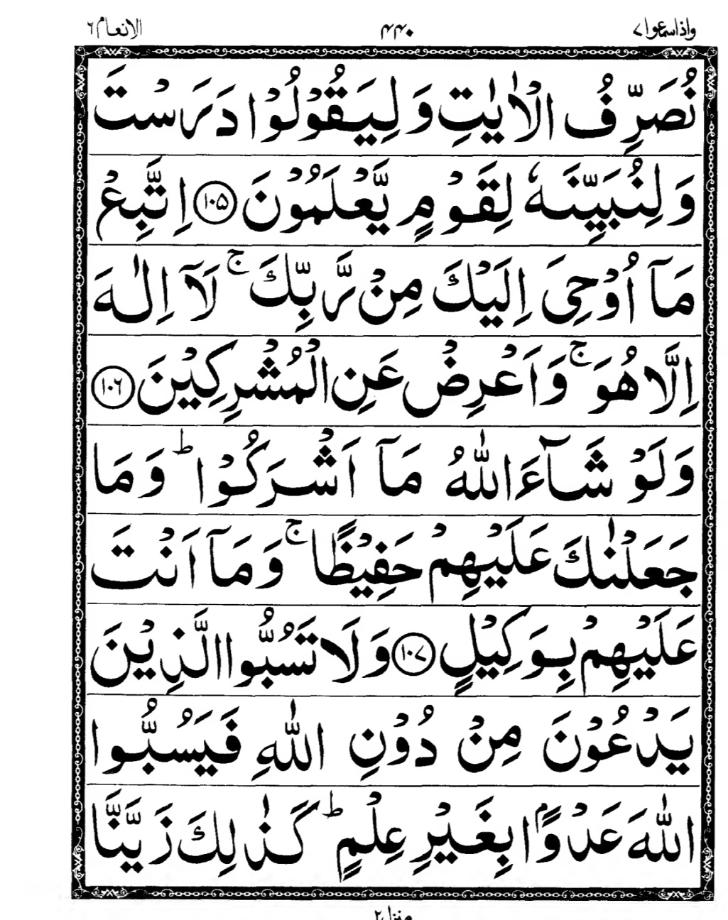 واذاسمعوا ٧ ۴۴۰ الانعام ٦
نُصَرِّفُ الْاٰيٰتِ وَلِيَقُوْلُوْا دَرَسْتَ
وَلِنُبَيِّنَهٗ لِقَوْمٍ يَّعْلَمُوْنَ ﴿۱۰۵﴾ اِتَّبِعْ
مَاۤ اُوْحِىَ اِلَيْكَ مِنْ رَّبِّكَ ۚ لَاۤ اِلٰهَ
اِلَّا هُوَ ۚ وَاَعْرِضْ عَنِ الْمُشْرِكِيْنَ ﴿۱۰۶﴾
وَلَوْ شَآءَ اللّٰهُ مَاۤ اَشْرَكُوْا ؕ وَمَا
جَعَلْنٰكَ عَلَيْهِمْ حَفِيْظًا ۚ وَمَاۤ اَنْتَ
عَلَيْهِمْ بِوَكِيْلٍ ﴿۱۰۷﴾ وَلَا تَسُبُّوا الَّذِيْنَ
يَدْعُوْنَ مِنْ دُوْنِ اللّٰهِ فَيَسُبُّوا
اللّٰهَ عَدْوًۢا بِغَيْرِ عِلْمٍ ؕ كَذٰلِكَ زَيَّنَّا
منزل ٢